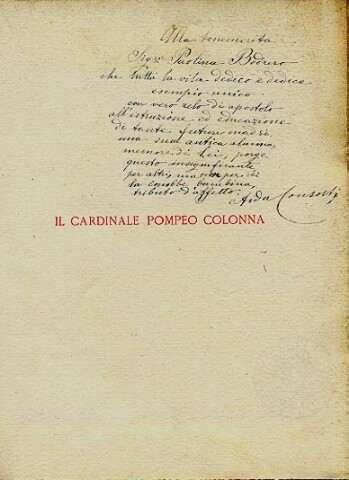 Alla benemerita
Sigra Paolina Bodero
che tutta la vita dedicò e dedica
esempio unico
con vero zelo di apostolo
all'istruzione ed educazione
di tante future madri,
una sua antica alunna,
memore di Lei, porge
questo insignificante
per altri, ma non per chi
la conobbe bambina,
tributo d'affetto.
Aida Consorti
IL CARDINALE POMPEO COLONNA